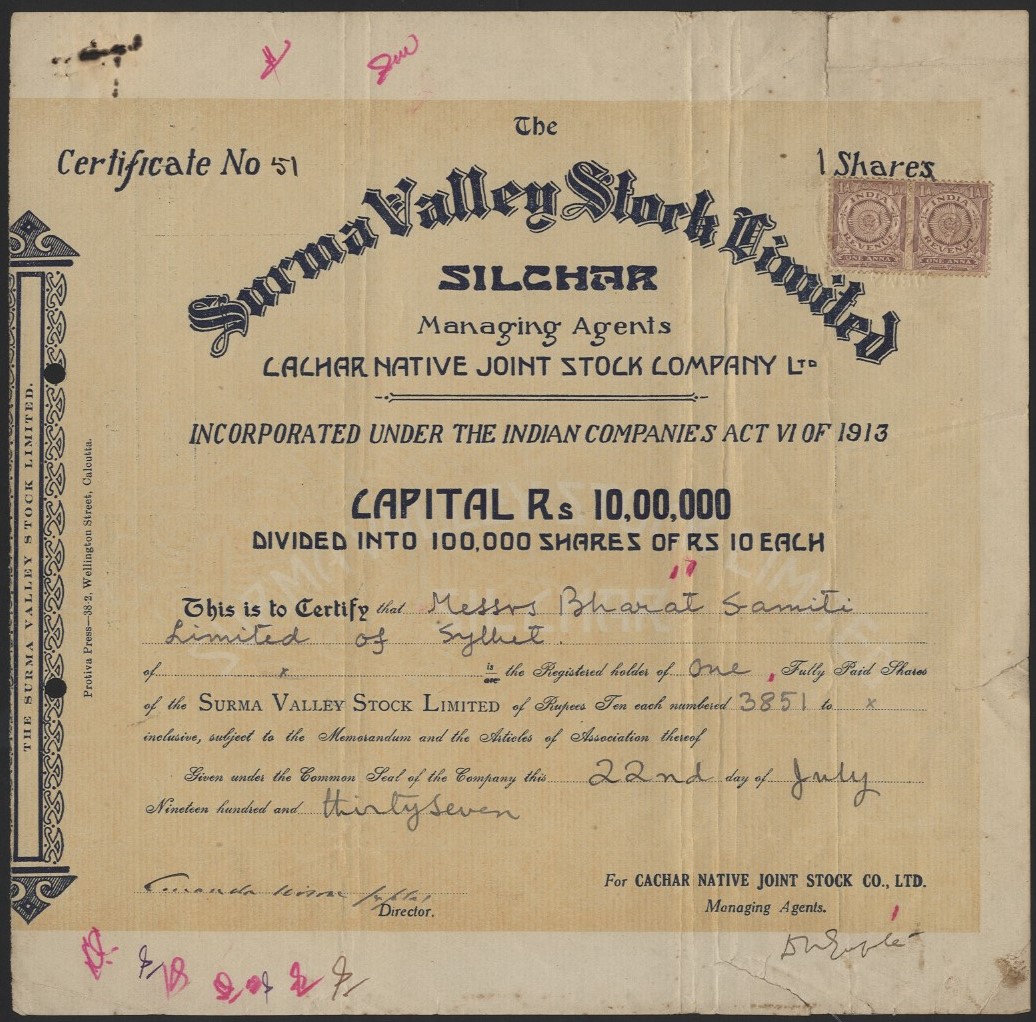 The
Certificate No 51
1 Shares
Surma Valley Stock Limited
INDIA
REVENUE
ONE ANNA
INDIA
REVENUE
ONE ANNA
SILCHAR
Managing Agents
CACHAR NATIVE JOINT STOCK COMPANY LTD
INCORPORATED UNDER THE INDIAN COMPANIES ACT VI OF 1913
CAPITAL Rs 10,00,000
DIVIDED INTO 100,000 SHARES OF RS 10 EACH
This is to Certify that Messrs Bharat Samiti
Limited of Sylhet.
of x is are the Registered holder of One Fully Paid Shares
of the SURMA VALLEY STOCK LIMITED of Rupees Ten each numbered 3851 to x
inclusive, subject to the Memorandum and the Articles of Association thereof
Given under the Common Seal of the Company this 22nd day of July
Nineteen hundred and thirty seven
Director.
For CACHAR NATIVE JOINT STOCK CO., LTD.
Managing Agents.
THE SURMA VALLEY STOCK LIMITED.
Protiva Press—38-2, Wellington Street, Calcutta.